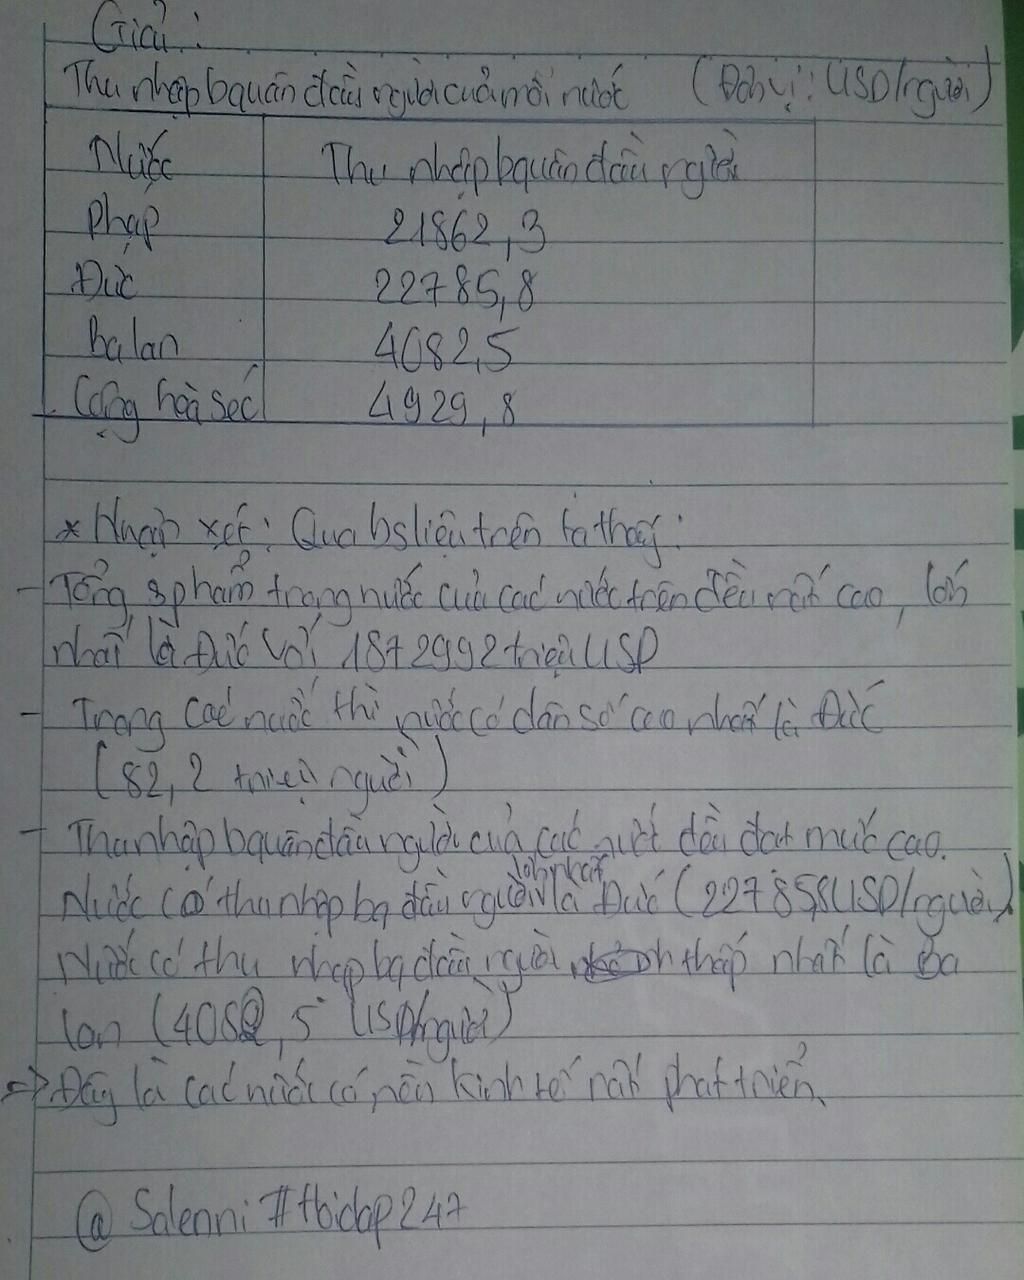 Giải:
Thu nhập bquân đầu người của mỗi nước (Đơn vị: USD/người)
Nước Thu nhập bquân đầu người
Pháp 21862,3
Đức 22785,8
Balan 4082,5
Cộng hoà Séc 4929,8
* Nhận xét: Qua bsliệu trên ta thấy:
- Tổng sphẩm trong nước của các nước trên đều rất cao, lớn
nhất là Đức với 1872992 triệu USD
- Trong các nước thì nước có dân số cao nhất là Đức
(82,2 triệu người)
- Thu nhập bquân đầu người của các nước đều đạt mức cao.
Nước có thu nhập bq đầu người lớn nhất là Đức (22785,8USD/người)
Nước có thu nhập bq đầu người thấp nhất là Ba
lan (4082,5 USD/người)
=> Đây là các nước có nền kinh tế rất phát triển.
@ Salenni #hoidap247